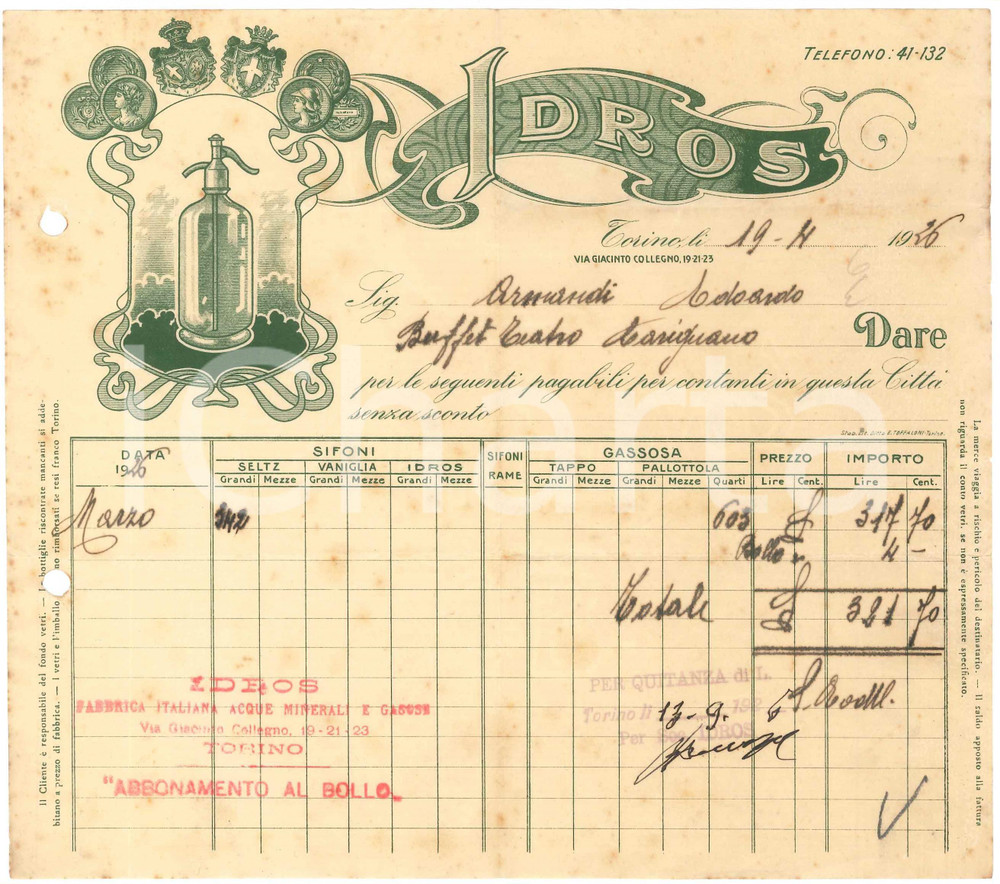 TELEFONO: 41-132
IDROS
Torino, lì 19 - 4 1926
VIA GIACINTO COLLEGNO, 19-21-23
Sig. Armandi Edoardo
Buffet Teatro Carignano Dare
per le seguenti pagabili per contanti in questa Città
senza sconto
DATA 1926 SIFONI SIFONI RAME GASSOSA PREZZO IMPORTO
SELTZ VANIGLIA IDROS TAPPO PALLOTTOLA
Grandi Mezze Grandi Mezze Grandi Mezze Grandi Mezze Grandi Mezze Quarti Lire Cent. Lire Cent.
Marzo 342 603 £ 317 70
Bollo " 4 -
Totale £ 321 70
IDROS
FABBRICA ITALIANA ACQUE MINERALI E GASOSE
Via Giacinto Collegno, 19-21-23
TORINO
"ABBONAMENTO AL BOLLO"
PER QUITANZA di L.
Torino li 13-9- 192 6
Per Soc. IDROS
Il Cliente è responsabile del fondo vetri. — Le bottiglie riscontrate mancanti si adde-
bitano a prezzo di fabbrica. — I vetri e l'imballo rimborsati se resi franco Torino.
La merce viaggia a rischio e pericolo del destinatario. — Il saldo apposto alla fatture
non riguarda il conto vetri, se non è espressamente specificato.
iCharta